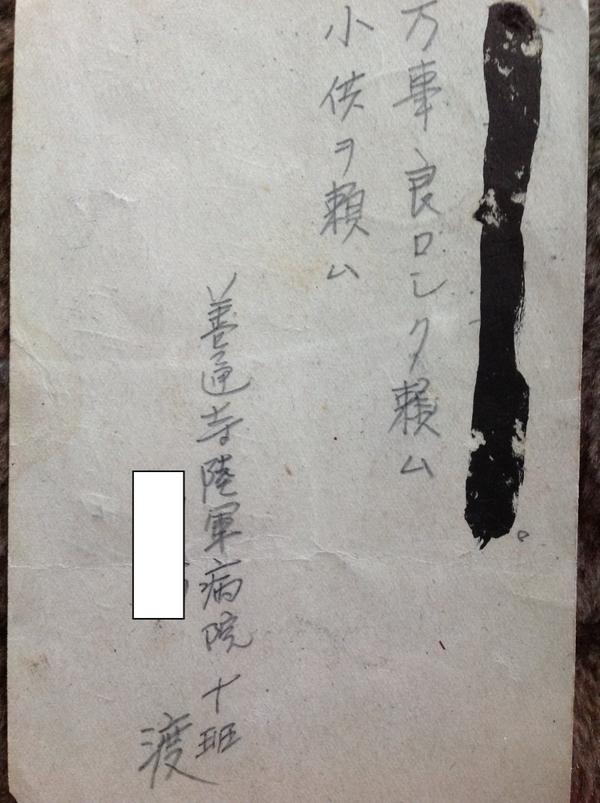 万事良ロシク頼ム
小供ヲ頼ム
善通寺陸軍病院十班
渡